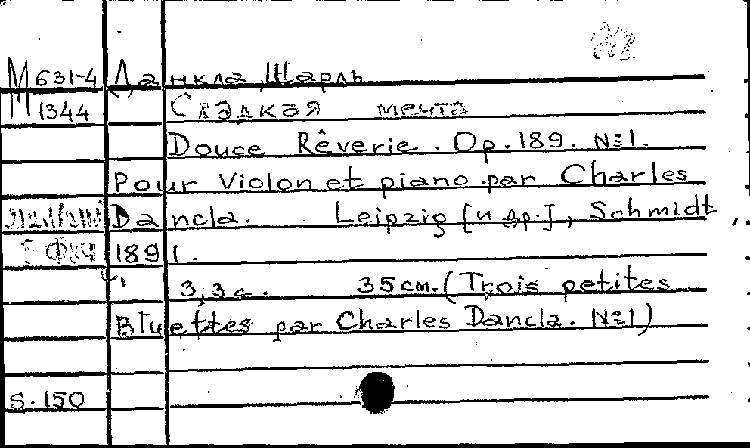 М 631-4 Данкла, Шарль
М 1344 Сладкая мечта
Douce Rêverie. Op. 189. №1.
Pour Violon et piano par Charles
Dancla. Leipzig [и др.], Schmidt,
1891.
3,3 с. 35 см. (Trois petites
Bluettes par Charles Dancla. №1)
S. 150